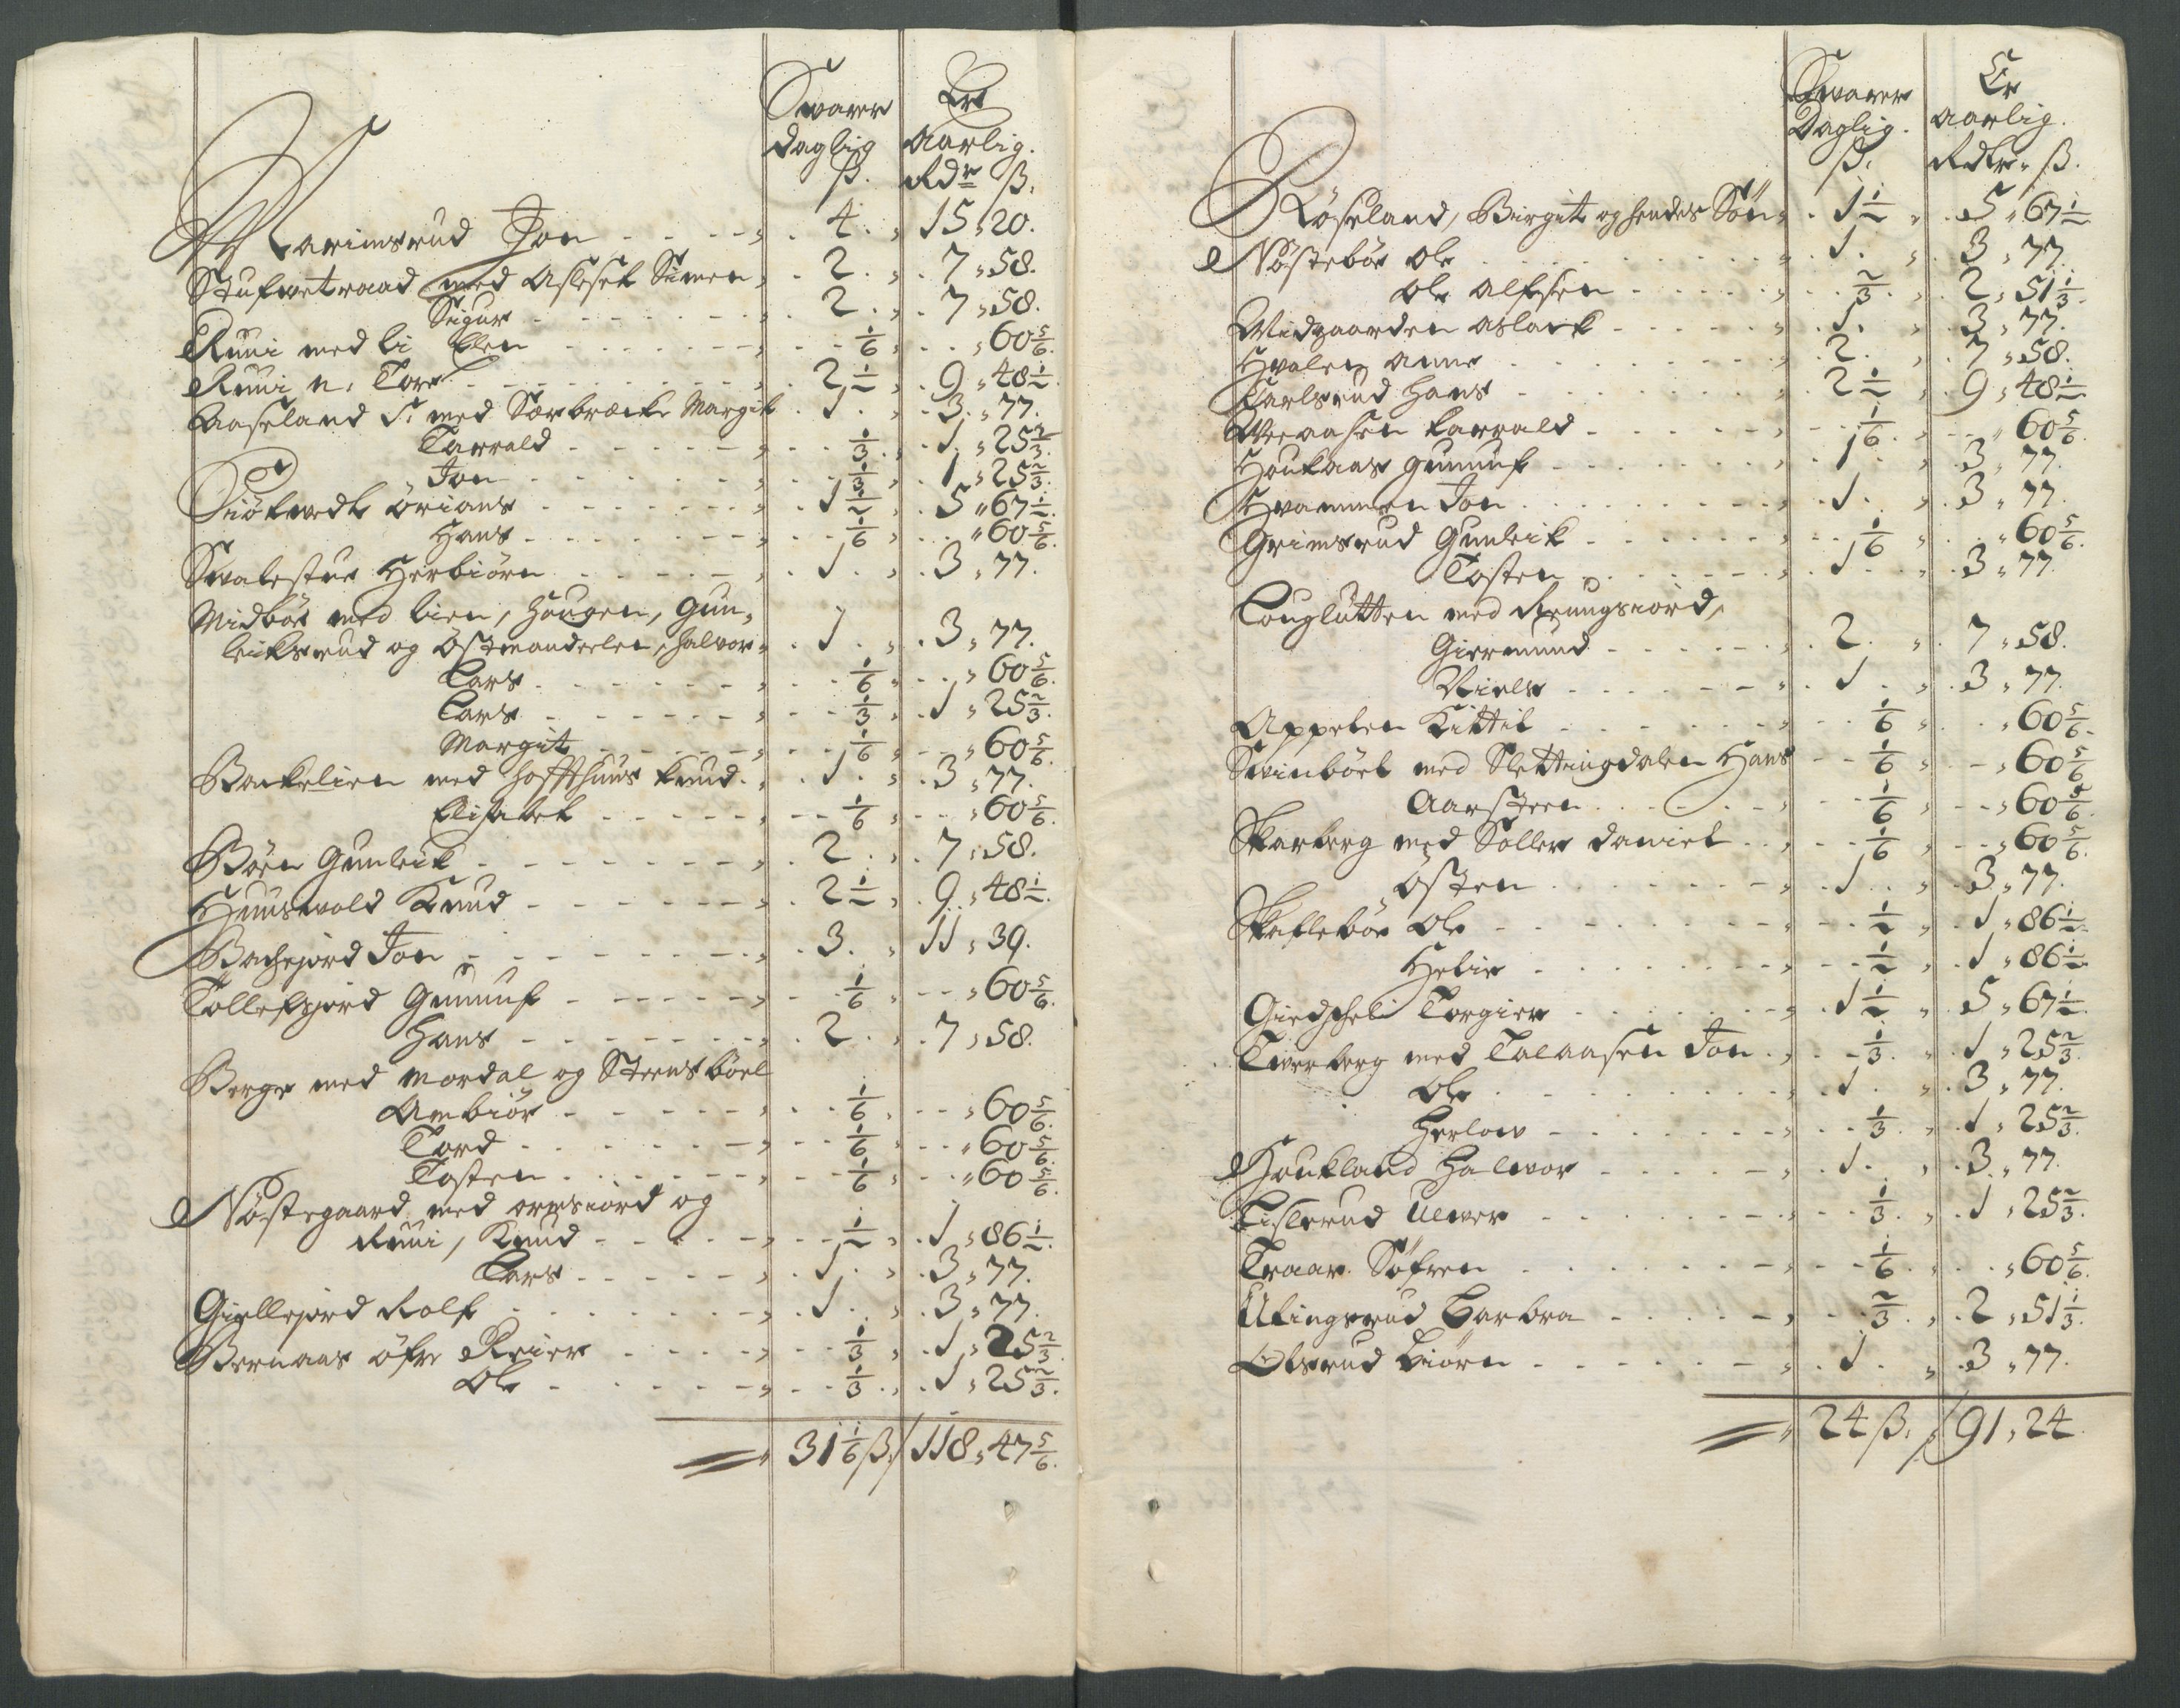 Svarer
daglig
ß.
Er
Aarlig.
Rdr ß.
Marimsrud Jon 4. 15 20.
Stufvetraad med Aslesek Simen 2. 7 58.
Sigur 2. 7 58.
Ruui med li Elen 1/6 60 5/6.
Ruui n: Tore 2 1/2 9 48 1/2.
Aaseland S: med Sørbræcke Margit 1. 3. 77.
Tarrald 1/3 1 25 2/3.
Jon 1/3 1 25 2/3.
Siøtvedt Ørians 1 1/2 5 67 1/2.
Hans 1/6 60 5/6.
Svalestue Herbiørn 1. 3 77.
Midbøe med lien, Hougen, Gun,
leiksrud og Østmanderlen, Halvor 1. 3 77.
Lars 1/6 60 5/6.
Lars 1/3 1 25 2/3.
Margit 1/6 60 5/6.
Backelien med Hoffthuus Knud 1. 3 77.
Elisabet 1/6 60 5/6.
Bøen Gunleik 2. 7 58.
Huusvold Knud 2 1/2 9 48 1/2.
Bachejord Jon 3. 11 39.
Tollefsjord Gunnuf 1/6 60 5/6.
Hans 2. 7 58.
Berge med Mordal og Steensbøel
Anbiør 1/6 60 5/6.
Tord 1/6 60 5/6.
Tosten 1/6 60 5/6.
Nøstegaard med ormsiord og
Ruui, Knud 1/2 1 86 1/2.
Lars 1. 3 77.
Giellejord Rolf 1. 3 77.
Bernaas øfre Reier 1/3 1 25 2/3.
Ole 1/3 1 25 2/3.
31 1/6 ß. 118 47 5/6.
Svarer
Daglig.
ß.
Er
aarlig.
Rdlr ß.
Røseland, Birgit og hendes Søn 1 1/2 5 67 1/2
Nøstebøe Ole 1. 3 77.
Ole Alfsen 2/3. 2 51 1/3.
Midgaarden Aslack 1. 3 77.
Hvalen Anne 2. 7 58.
Karlsrud Hans 2 1/2 9 48 1/2
Vraasen Tarrald 1/6. 60 5/6.
Houkaas Gunnuf 1. 3 77.
Hvammen Jon 1. 3 77.
Grimsrud Gunleik 1/6 60 5/6.
Tosten 1. 3 77.
Langlutten med Krungsiord,
Giermund 2. 7 58.
Niels 1. 3 77.
Appelen Kittil 1/6 60 5/6.
Svinbøel med Slettingdalen Hans 1/6 60 5/6
Aarsteen 1/6 60 5/6.
Skarberg med Soller Daniel 1/6 60 5/6.
Østen 1. 3 77.
Skaflebøe Ole 1/2 1 86 1/2.
Helie 1/2 1 86 1/2.
Giedscheli Torgier 1 1/2 5 67 1/2.
Tverberg med Talaasen Jon 1/3. 1 25 2/3.
Ole 1. 3 77.
Herlow 1/3. 1 25 2/3.
Houkland Halvor 1. 3 77.
Tislerud Ulver 1/3. 1 25 2/3.
Traar Søfren 1/6. 60 5/6.
Ulingsrud Barbra 2/3. 2 51 1/3.
Olsrud Biørn 1. 3 77.
24 ß. 91 24